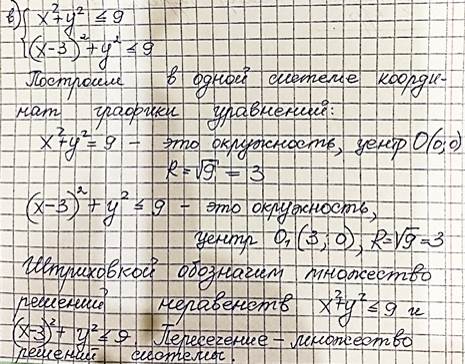 в) { x²+y² ≤ 9
{ (x-3)²+y² ≤ 9
Построим в одной системе коорди-
нат графики уравнений:
x²+y²=9 - это окружность, центр O(0;0)
R=√9 = 3
(x-3)²+y² ≤ 9 - это окружность,
центр O₁(3;0), R=√9=3
Штриховкой обозначим множество
решений неравенств x²+y² ≤ 9 и
(x-3)²+y² ≤ 9. Пересечение - множество
решений системы.